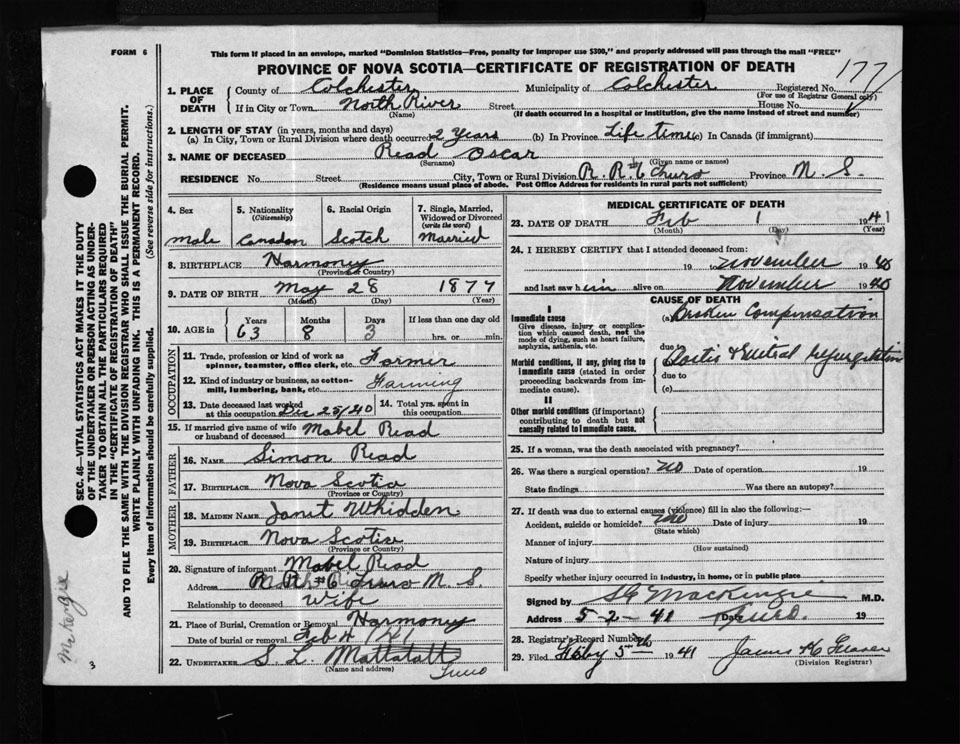 FORM 6
This form if placed in an envelope, marked "Dominion Statistics—Free, penalty for improper use $300," and properly addressed will pass through the mail "FREE"
PROVINCE OF NOVA SCOTIA—CERTIFICATE OF REGISTRATION OF DEATH
177
1. PLACE OF DEATH County of Colchester Municipality of Colchester Registered No.
(For use of Registrar General only)
If in City or Town North River Street House No.
(Name) (If death occurred in a hospital or institution, give the name instead of street and number)
2. LENGTH OF STAY (in years, months and days)
(a) In City, Town or Rural Division where death occurred 2 years (b) In Province Life time (c) In Canada (if immigrant)
3. NAME OF DECEASED Read Oscar
(Surname) (Given name or names)
RESIDENCE No. Street City, Town or Rural Division R. R. #6 Truro Province N. S.
(Residence means usual place of abode. Post Office Address for residents in rural parts not sufficient)
4. Sex male
5. Nationality (Citizenship) Canadian
6. Racial Origin Scotch
7. Single, Married, Widowed or Divorced (write the word) Married
8. BIRTHPLACE Harmony
(Province or Country)
9. DATE OF BIRTH May 28 1877
(Month) (Day) (Year)
10. AGE in Years 63 Months 8 Days 3 If less than one day old hrs. or min.
OCCUPATION
11. Trade, profession or kind of work as spinner, teamster, office clerk, etc. Farmer
12. Kind of industry or business, as cotton-mill, lumbering, bank, etc. Farming
13. Date deceased last worked at this occupation Dec 25/40 14. Total yrs. spent in this occupation
15. If married give name of wife or husband of deceased Mabel Read
FATHER
16. NAME Simon Read
17. BIRTHPLACE Nova Scotia
(Province or Country)
MOTHER
18. MAIDEN NAME Janet Whidden
19. BIRTHPLACE Nova Scotia
(Province or Country)
20. Signature of informant Mabel Read
Address #6 Truro N. S.
Relationship to deceased Wife
21. Place of Burial, Cremation or Removal Harmony
Date of burial or removal Feb 4/41
22. UNDERTAKER S. L. Mattatall
(Name and address) Truro
MEDICAL CERTIFICATE OF DEATH
23. DATE OF DEATH Feb 1 1941
(Month) (Day) (Year)
24. I HEREBY CERTIFY that I attended deceased from:
19 to November 1940
and last saw him alive on November 1940
CAUSE OF DEATH
I
Immediate cause
Give disease, injury or complication which caused death, not the mode of dying, such as heart failure, asphyxia, asthenia, etc.
(a) Broken Compensation
due to
Morbid conditions, if any, giving rise to immediate cause (stated in order proceeding backwards from immediate cause).
due to
(c)
II
Other morbid conditions (if important) contributing to death but not causally related to immediate cause.
25. If a woman, was the death associated with pregnancy?
26. Was there a surgical operation? no Date of operation 19
State findings Was there an autopsy?
27. If death was due to external causes (violence) fill in also the following:—
Accident, suicide or homicide? no Date of injury 19
(State which)
Manner of injury
(How sustained)
Nature of injury
Specify whether injury occurred in industry, in home, or in public place
Signed by MacKenzie M.D.
Address 5-2-41 Date Truro 19
28. Registrar's Record Number
29. Filed Feby 5th 1941 James
(Division Registrar)
SEC. 46—VITAL STATISTICS ACT MAKES IT THE DUTY
OF THE UNDERTAKER OR PERSON ACTING AS UNDER-
TAKER TO OBTAIN ALL THE PARTICULARS REQUIRED
IN THE "CERTIFICATE OF REGISTRATION OF DEATH"
AND TO FILE THE SAME WITH THE DIVISION REGISTRAR WHO SHALL ISSUE THE BURIAL PERMIT.
WRITE PLAINLY WITH UNFADING INK. THIS IS A PERMANENT RECORD.
Every item of information should be carefully supplied. (See reverse side for instructions.)
3